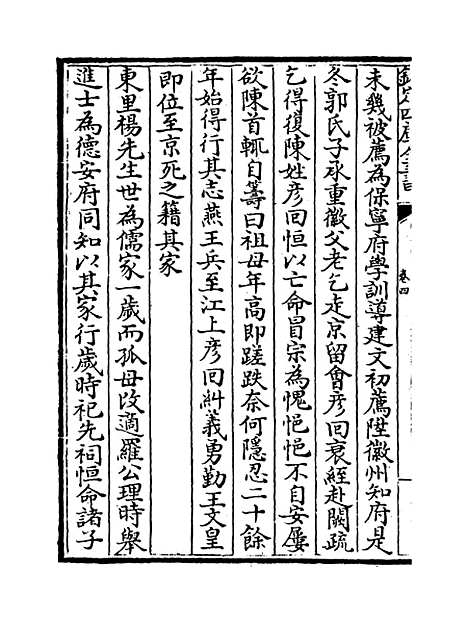 欽定四庫全書
卷四
未幾被薦為保寧府學訓導建文初薦陞徽州知府是
冬郭氏子承重徽父老乞走京留會彦回衰絰赴闕疏
乞得復陳姓彦回恒以亡命冒宗為愧悒悒不自安屢
欲陳首輒自籌曰祖母年高即蹉跌奈何隱忍二十餘
年始得行其志燕王兵至江上彦回糾義勇勤王文皇
即位至京死之籍其家
東里楊先生世為儒家一歲而孤母改適羅公理時舉
進士為德安府同知以其家行歲時祀先祠恒命諸子